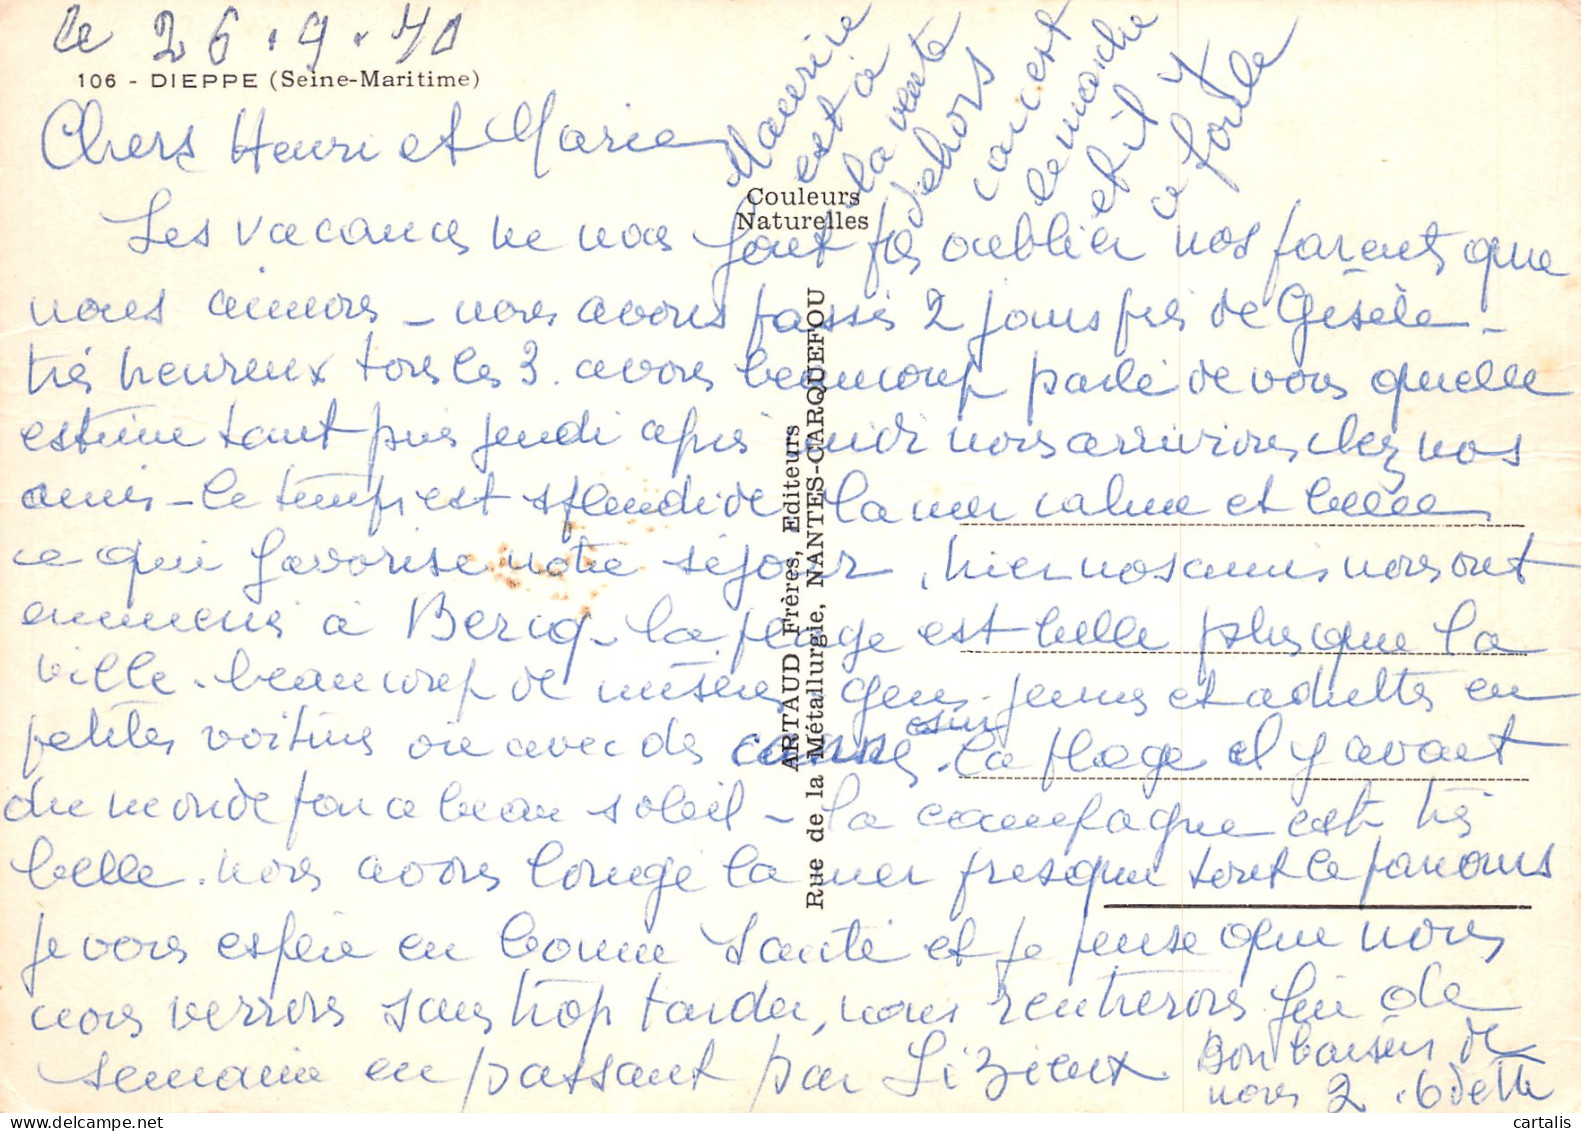 le 26.9.70
106 - DIEPPE (Seine-Maritime)
Chers Henri et Marie
Les vacances ne nous font pas oublier nos parents que
nous aimons - nous avons passés 2 jours près de Gisèle -
très heureux tous les 3. avons beaucoup parlé de vous quelle
estime tant puis jeudi après midi nous arrivions chez nos
amis - le temps est splendide la mer calme et belle
ce qui favorise notre séjour, hier nos amis nous ont
emmenés à Bercq - la plage est belle plus que la
ville. beaucoup de misères gens jeunes et adultes en
petites voitures ou avec des cannes. sur la plage il y avait
du monde par ce beau soleil - la campagne est très
belle. nous avons longé la mer presque tout le parcours
je vous espère en bonne santé et je pense que nous
nous verrons sans trop tarder, nous rentrerons fin de
semaine en passant par Lizieux. Bon baisers de
nous 2. Odette
Maurice
est à
la vente
dehors
car c'est
le marché
et il y
a foule
Couleurs
Naturelles
ARTAUD Frères, Editeurs
Rue de la Métallurgie, NANTES-CARQUEFOU
cartalis